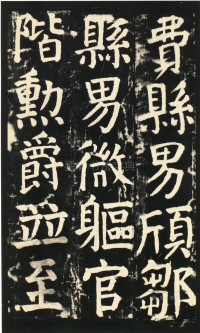 費縣男頎鄒
縣男微軀官
階勳爵並至